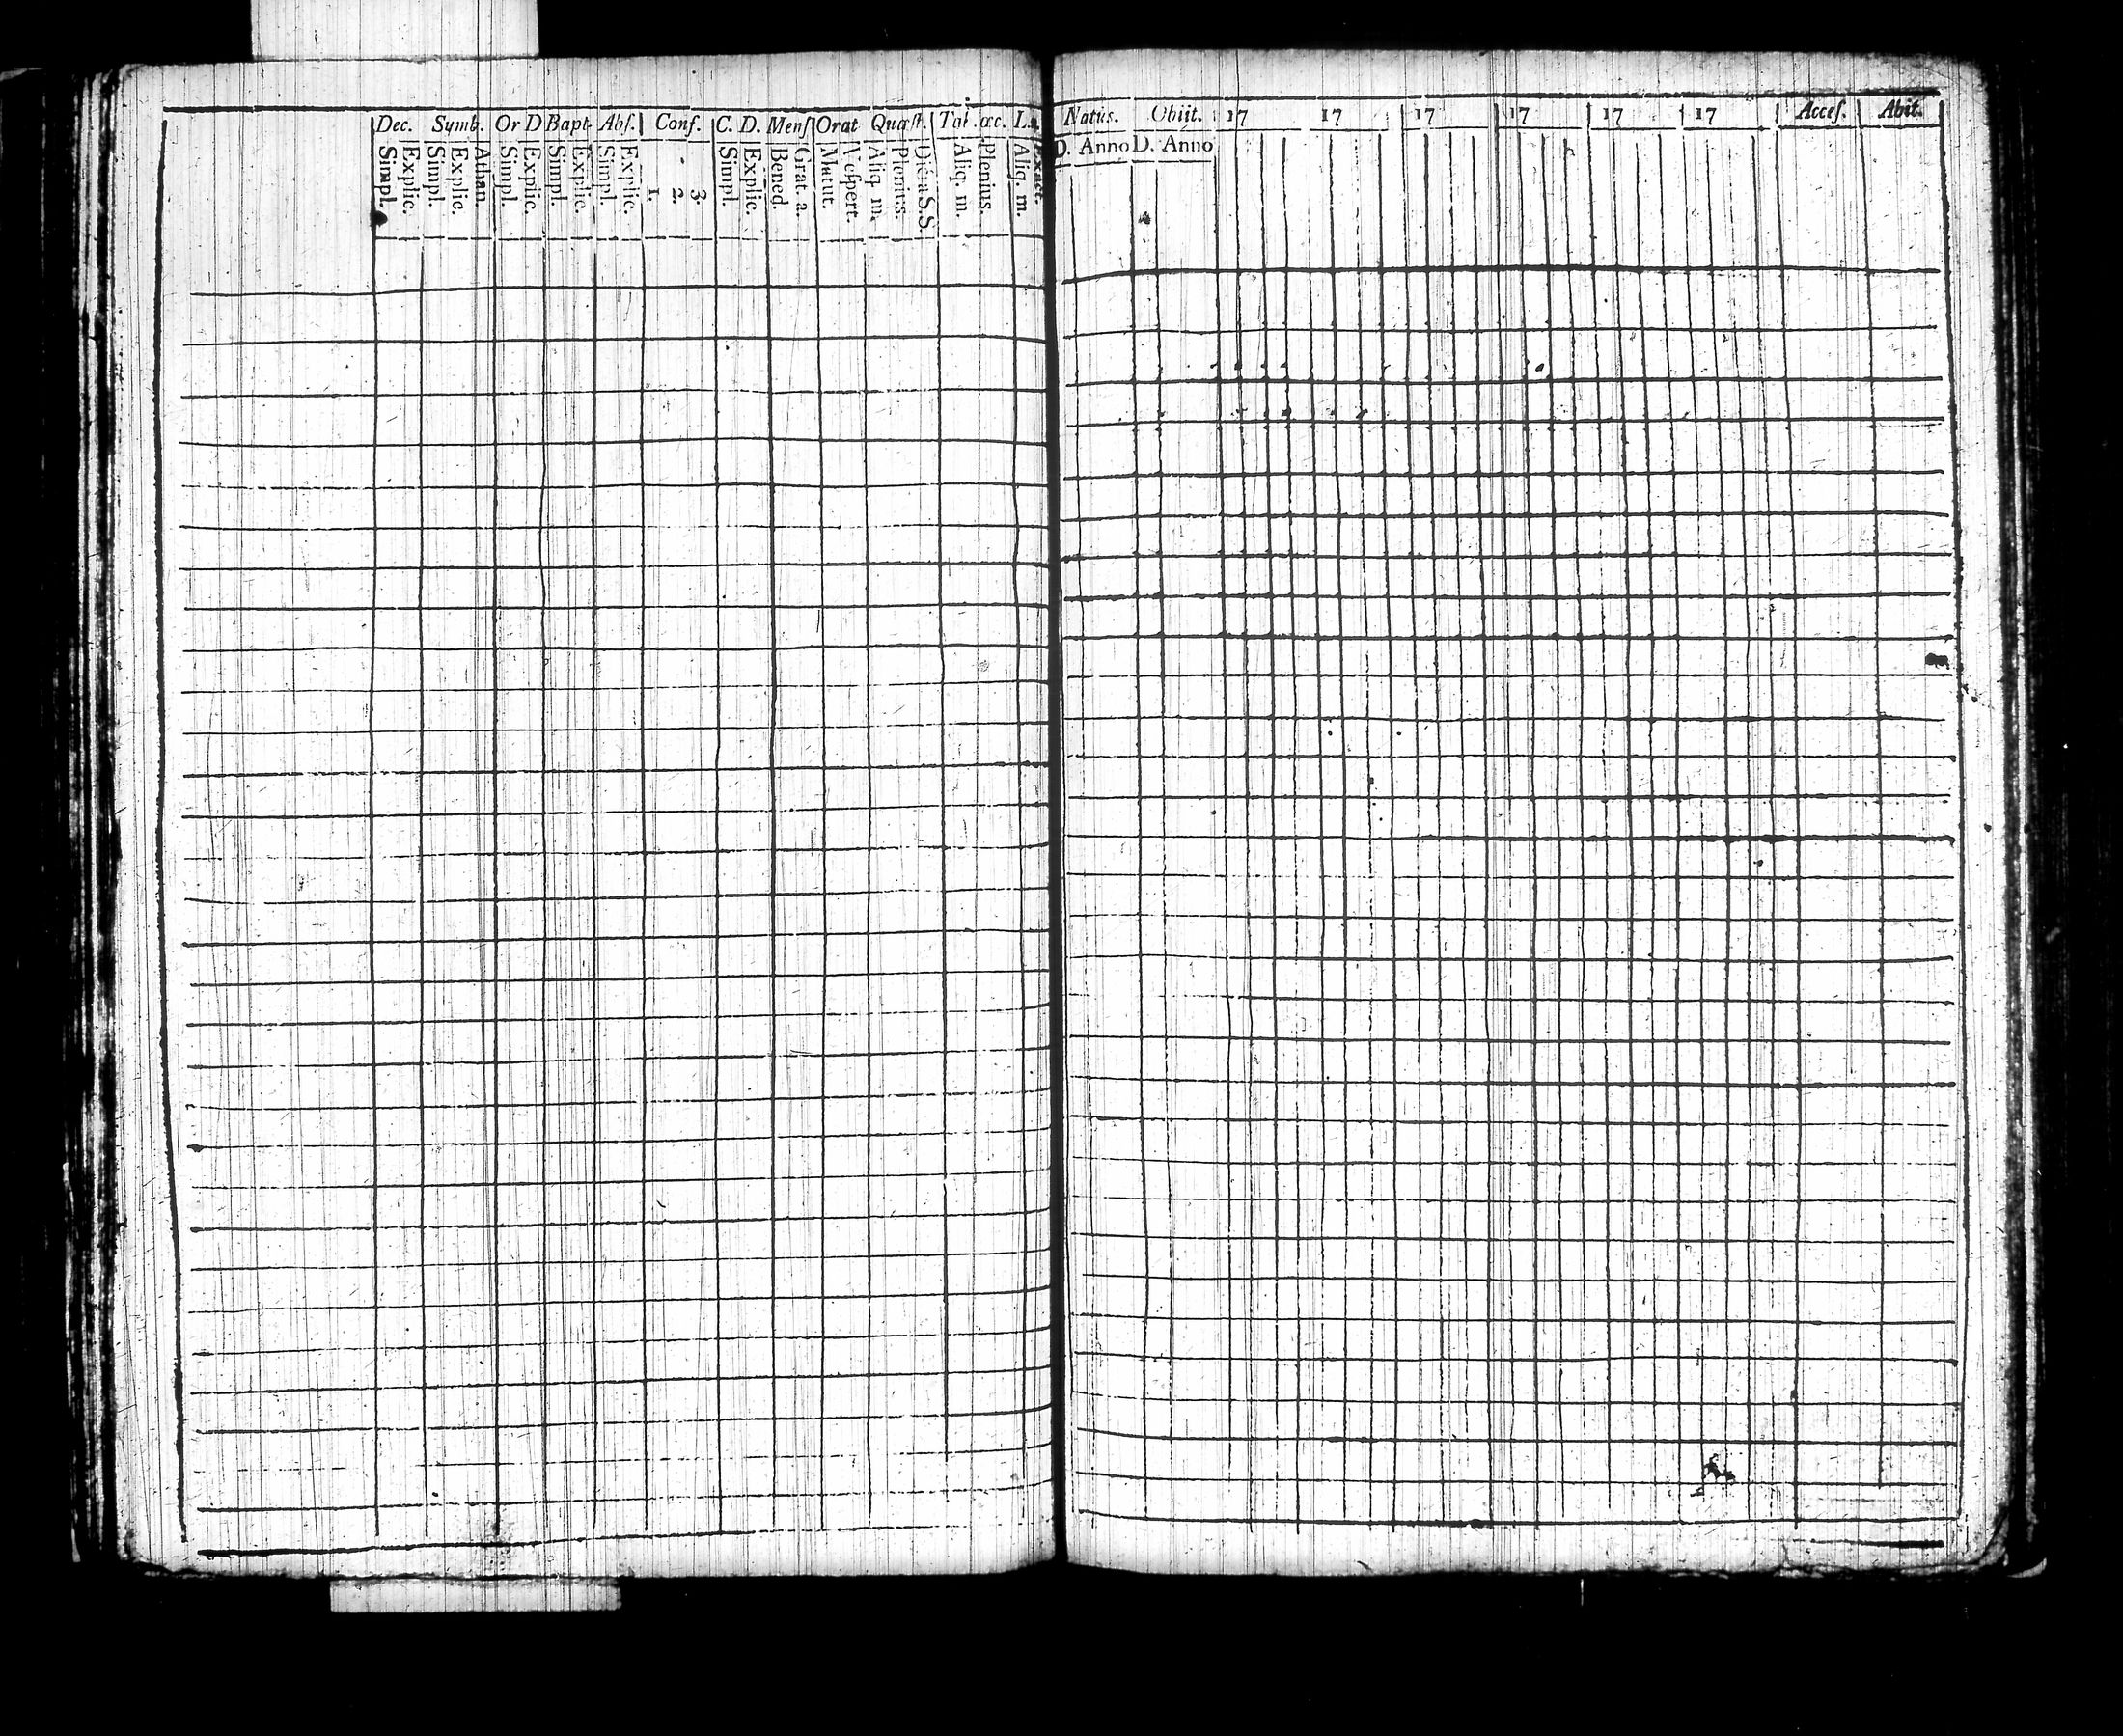 Dec. Symb. Or D Bapt. Abſ. Conf. C. D. Menſ Orat Quæſt. Tab. œc.
Simpl. Explic. Simpl. Explic. Athan. Simpl. Explic. Simpl. Explic. Simpl. Explic. 1. 2. 3. Simpl. Explic. Bened. Grat. a. Matut. Veſpert. Aliq. m. Plenius. Dicta S.S. Aliq. m. Plenius. Aliq. m. Exact.
Natus. Obiit. 17 17 17 17 17 17 Acceſ. Abit.
D. Anno D. Anno